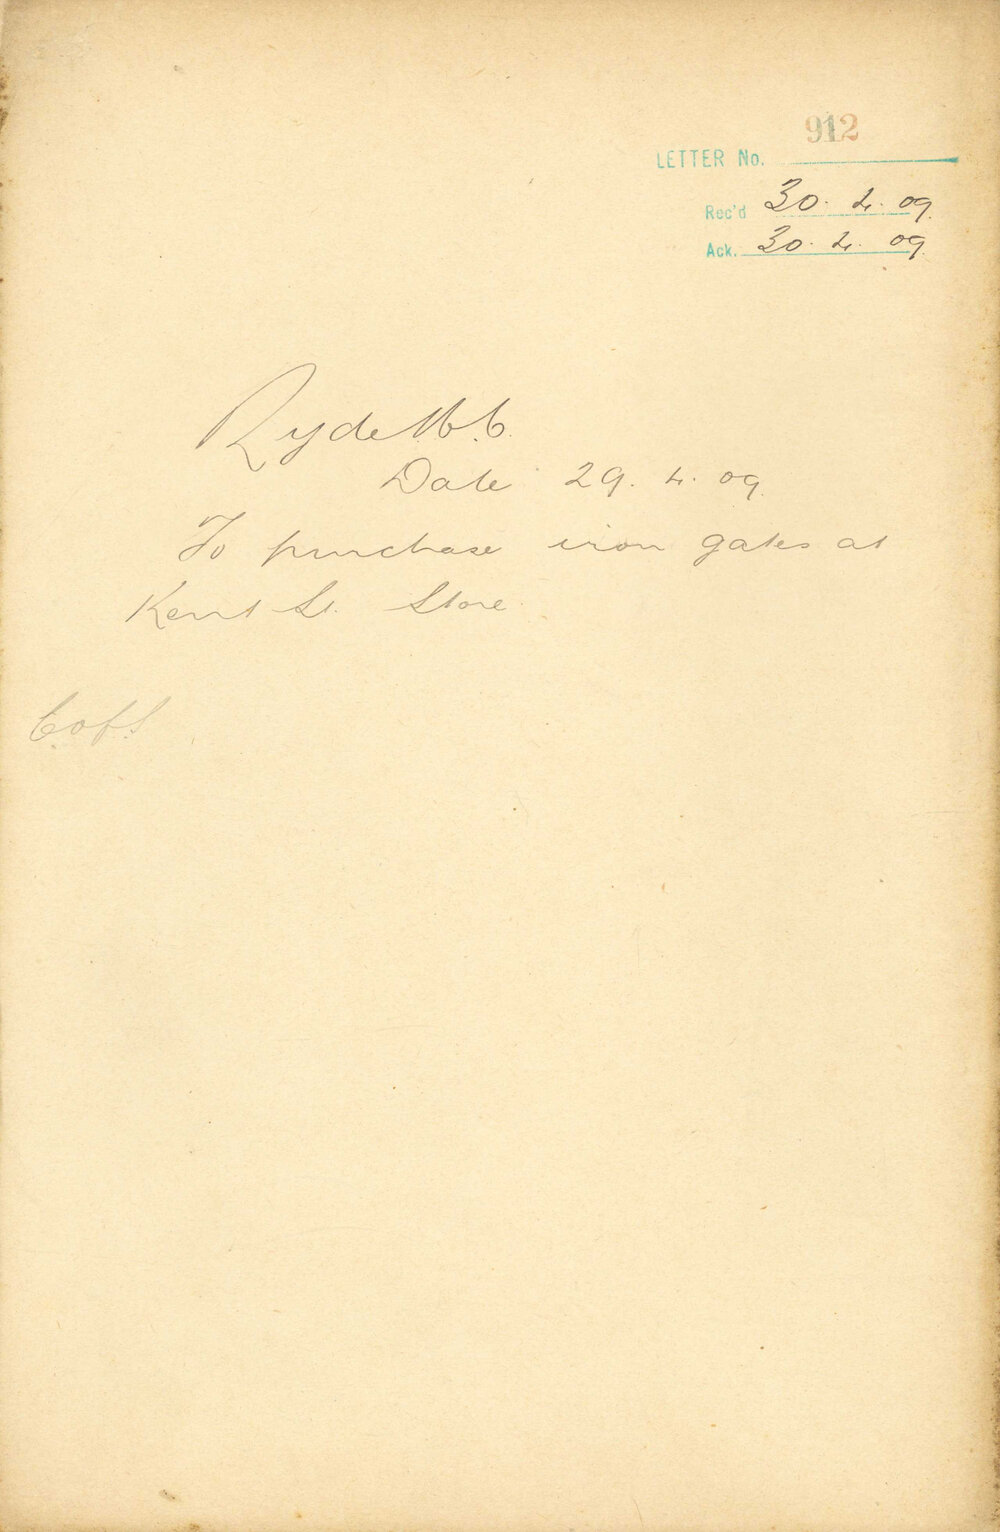 912
LETTER No.
Rec'd 30. 4. 09.
Ack. 30. 4. 09.
Ryde M.C.
Date 29. 4. 09.
To purchase iron gates at
Kent St. Store.
C of S